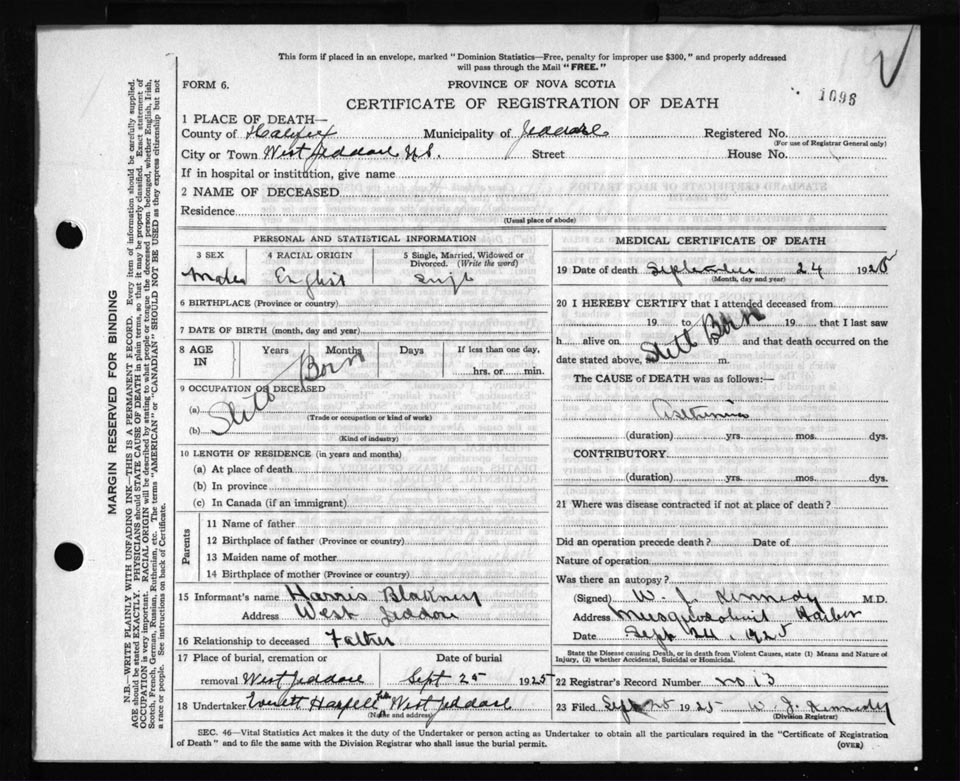 This form if placed in an envelope, marked "Dominion Statistics—Free, penalty for improper use $300," and properly addressed
will pass through the Mail "FREE."
FORM 6.
PROVINCE OF NOVA SCOTIA
CERTIFICATE OF REGISTRATION OF DEATH
1096
1 PLACE OF DEATH—
County of Halifax Municipality of Jeddore Registered No.
(For use of Registrar General only)
City or Town West Jeddore N.S. Street House No.
If in hospital or institution, give name
2 NAME OF DECEASED
Residence
(Usual place of abode)
PERSONAL AND STATISTICAL INFORMATION
3 SEX 4 RACIAL ORIGIN 5 Single, Married, Widowed or Divorced. (Write the word)
Male English Single
6 BIRTHPLACE (Province or country)
7 DATE OF BIRTH (month, day and year)
8 AGE IN Years Months Days If less than one day,
hrs. or min.
Still Born
9 OCCUPATION OF DECEASED
(a)
(Trade or occupation or kind of work)
(b)
(Kind of industry)
10 LENGTH OF RESIDENCE (in years and months)
(a) At place of death
(b) In province
(c) In Canada (if an immigrant)
Parents
11 Name of father
12 Birthplace of father (Province or country)
13 Maiden name of mother
14 Birthplace of mother (Province or country)
15 Informant's name Harris Blakney
Address West Jeddore
16 Relationship to deceased Father
17 Place of burial, cremation or Date of burial
removal West Jeddore Sept 25 1925
18 Undertaker Everett Harpell West Jeddore
(Name and address)
MEDICAL CERTIFICATE OF DEATH
19 Date of death September 24 1925
(Month, day and year)
20 I HEREBY CERTIFY that I attended deceased from
19 to 19 that I last saw
h alive on and that death occurred on the
Still Born
date stated above, m.
The CAUSE of DEATH was as follows:—
Asthenia
(duration) yrs. mos. dys.
CONTRIBUTORY
(duration) yrs. mos. dys.
21 Where was disease contracted if not at place of death?
Did an operation precede death? Date of
Nature of operation
Was there an autopsy?
(Signed) W. J. Kennedy M.D.
Address Musquodoboit Harbor
Date Sept 24, 1925
State the Disease causing Death, or in death from Violent Causes, state (1) Means and Nature of
Injury, (2) whether Accidental, Suicidal or Homicidal.
22 Registrar's Record Number no 13
23 Filed Sept 25 1925 W. J. Kennedy
(Division Registrar)
SEC. 46—Vital Statistics Act makes it the duty of the Undertaker or person acting as Undertaker to obtain all the particulars required in the "Certificate of Registration
of Death" and to file the same with the Division Registrar who shall issue the burial permit. (OVER)
MARGIN RESERVED FOR BINDING
N.B.—WRITE PLAINLY WITH UNFADING INK—THIS IS A PERMANENT RECORD. Every item of information should be carefully supplied.
AGE should be stated EXACTLY. PHYSICIANS should STATE CAUSE OF DEATH in plain terms, so that it may be properly classified. Exact statement of
OCCUPATION is very important. RACIAL ORIGIN will be described by stating to what people or tongue the deceased person belonged, whether English, Irish,
Scotch, French, German, Russian, Ruthenian, etc. The terms "AMERICAN" or "CANADIAN" SHOULD NOT BE USED as they express citizenship but not
a race or people. See instructions on back of Certificate.